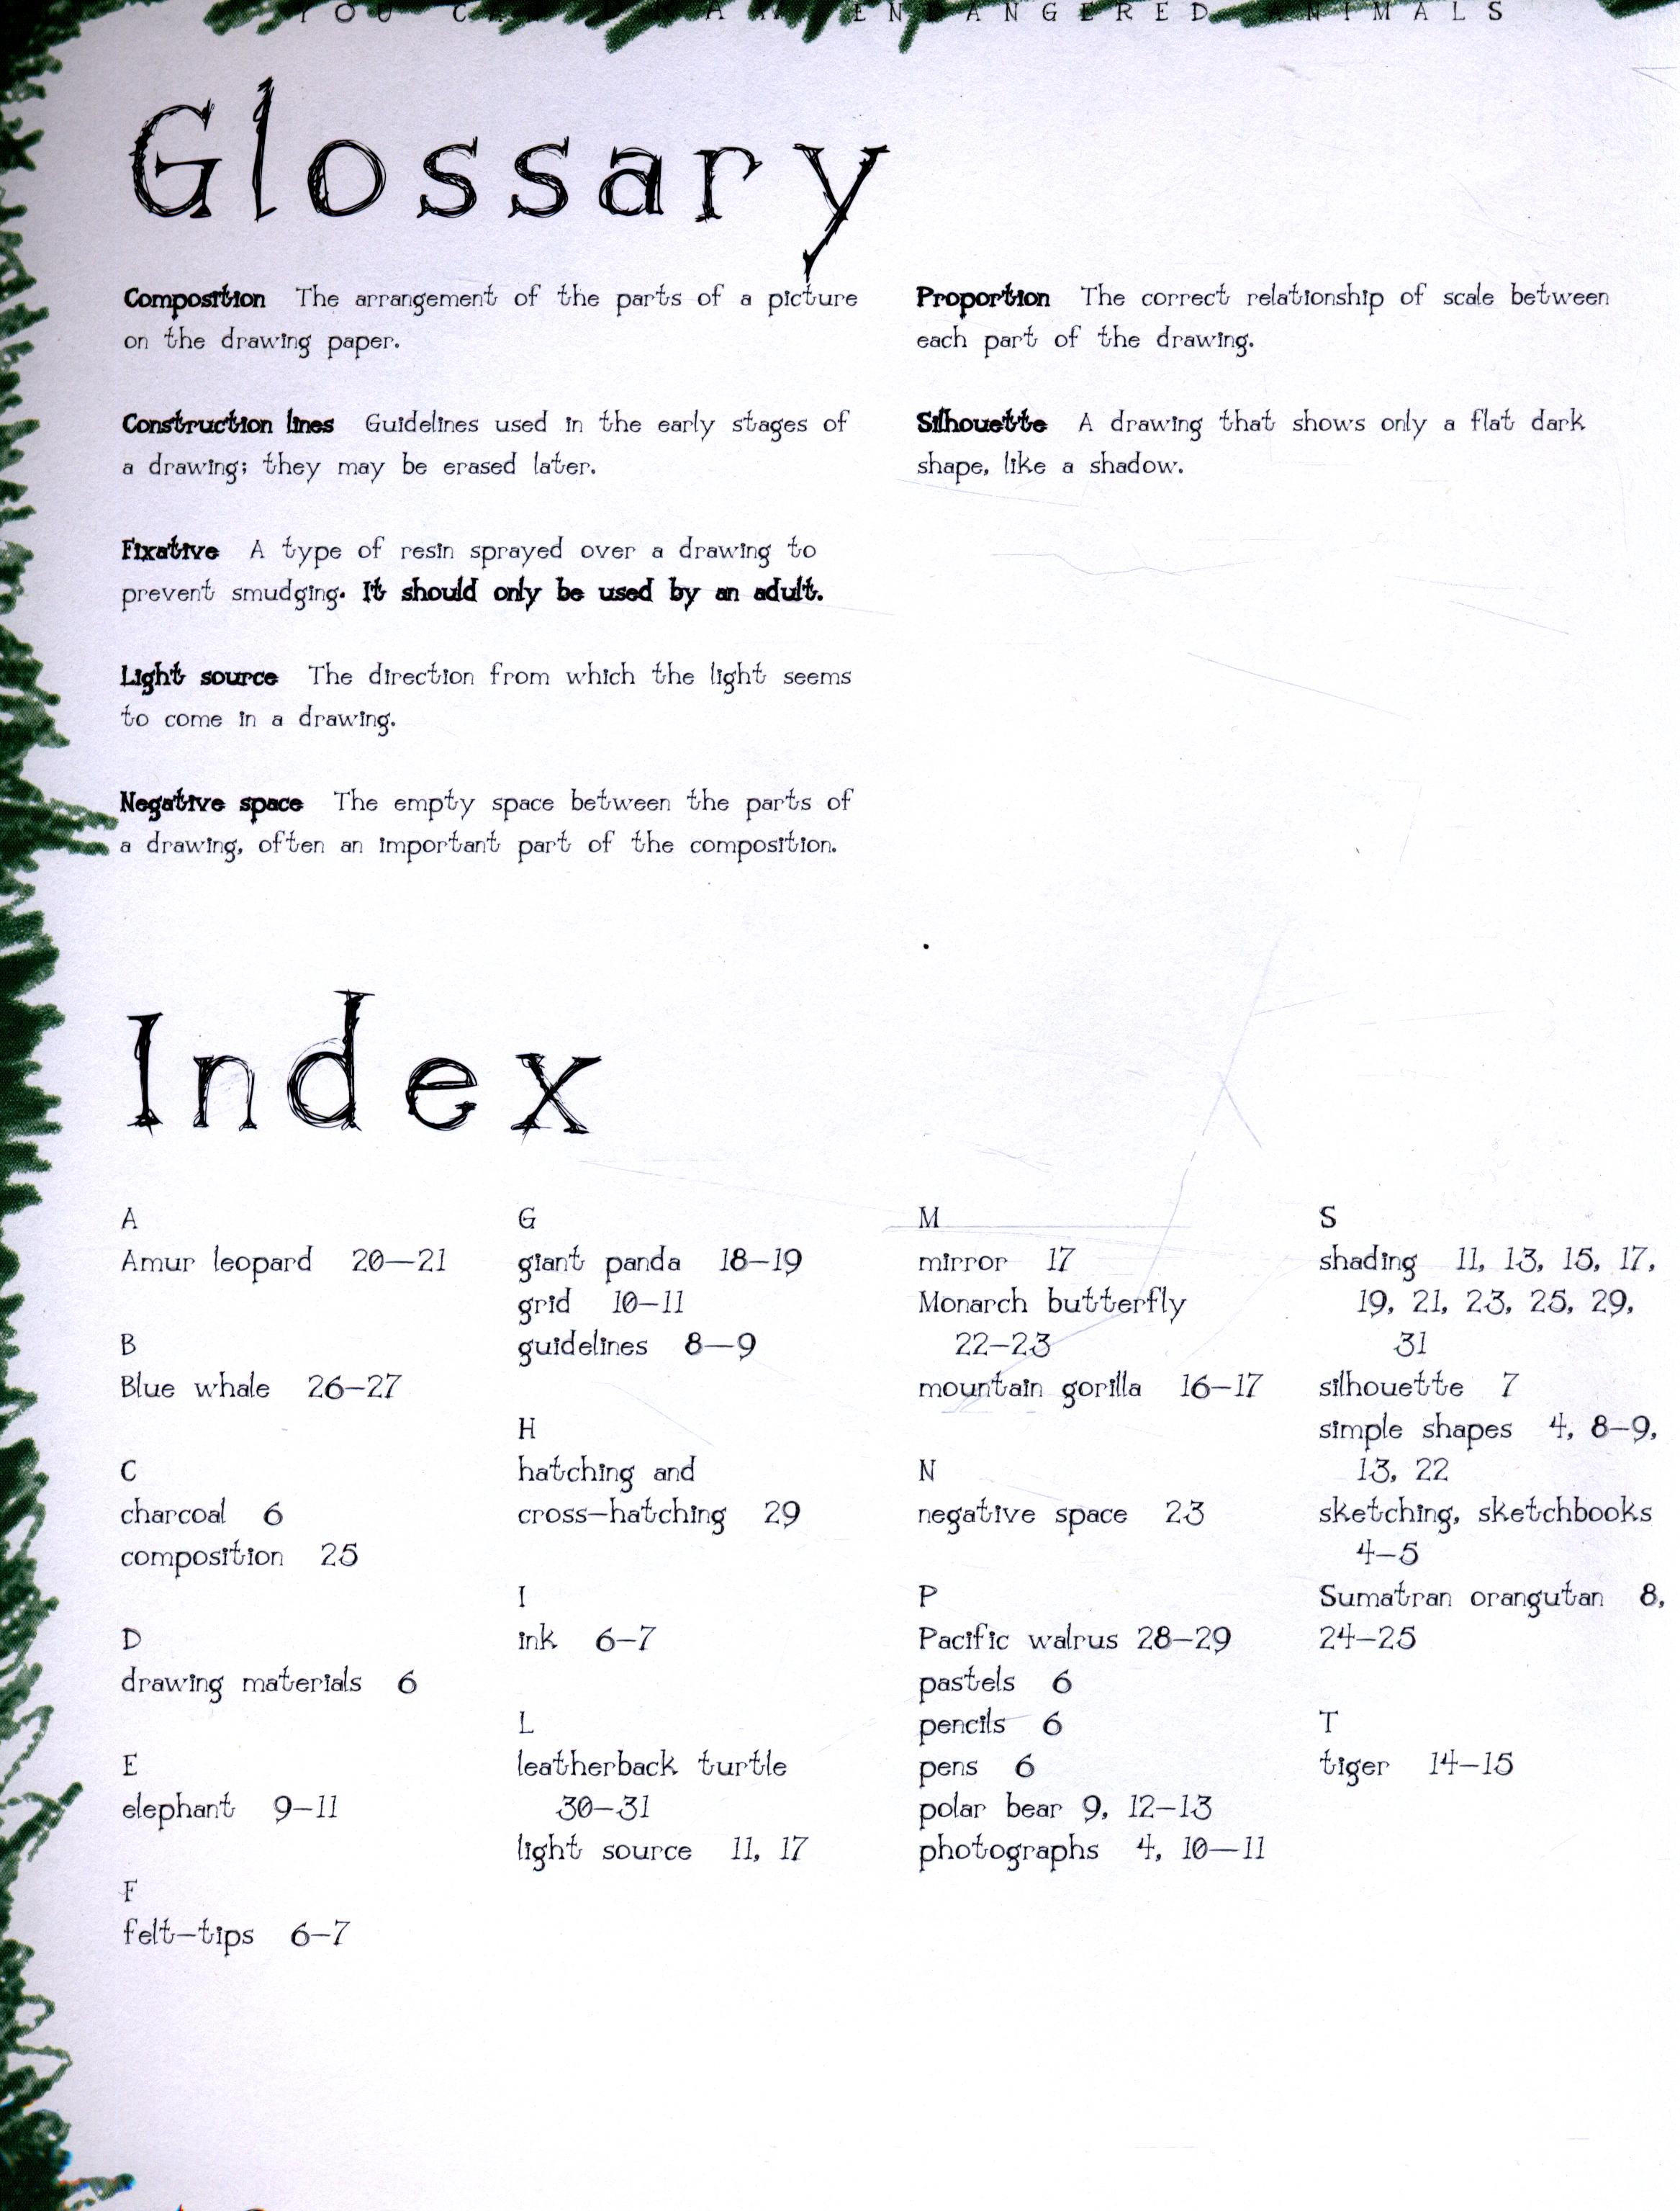 YOU CAN DRAW ENDANGERED ANIMALS
Glossary
Composition The arrangement of the parts of a picture
on the drawing paper.
Construction lines Guidelines used in the early stages of
a drawing; they may be erased later.
Fixative A type of resin sprayed over a drawing to
prevent smudging. It should only be used by an adult.
Light source The direction from which the light seems
to come in a drawing.
Negative space The empty space between the parts of
a drawing, often an important part of the composition.
Proportion The correct relationship of scale between
each part of the drawing.
Silhouette A drawing that shows only a flat dark
shape, like a shadow.
Index
A
Amur leopard 20—21
B
Blue whale 26–27
C
charcoal 6
composition 25
D
drawing materials 6
E
elephant 9–11
F
felt–tips 6–7
G
giant panda 18–19
grid 10–11
guidelines 8—9
H
hatching and
cross–hatching 29
I
ink 6–7
L
leatherback turtle
30–31
light source 11, 17
M
mirror 17
Monarch butterfly
22–23
mountain gorilla 16–17
N
negative space 23
P
Pacific walrus 28–29
pastels 6
pencils 6
pens 6
polar bear 9, 12–13
photographs 4, 10—11
S
shading 11, 13, 15, 17,
19, 21, 23, 25, 29,
31
silhouette 7
simple shapes 4, 8–9,
13, 22
sketching, sketchbooks
4–5
Sumatran orangutan 8,
24–25
T
tiger 14–15